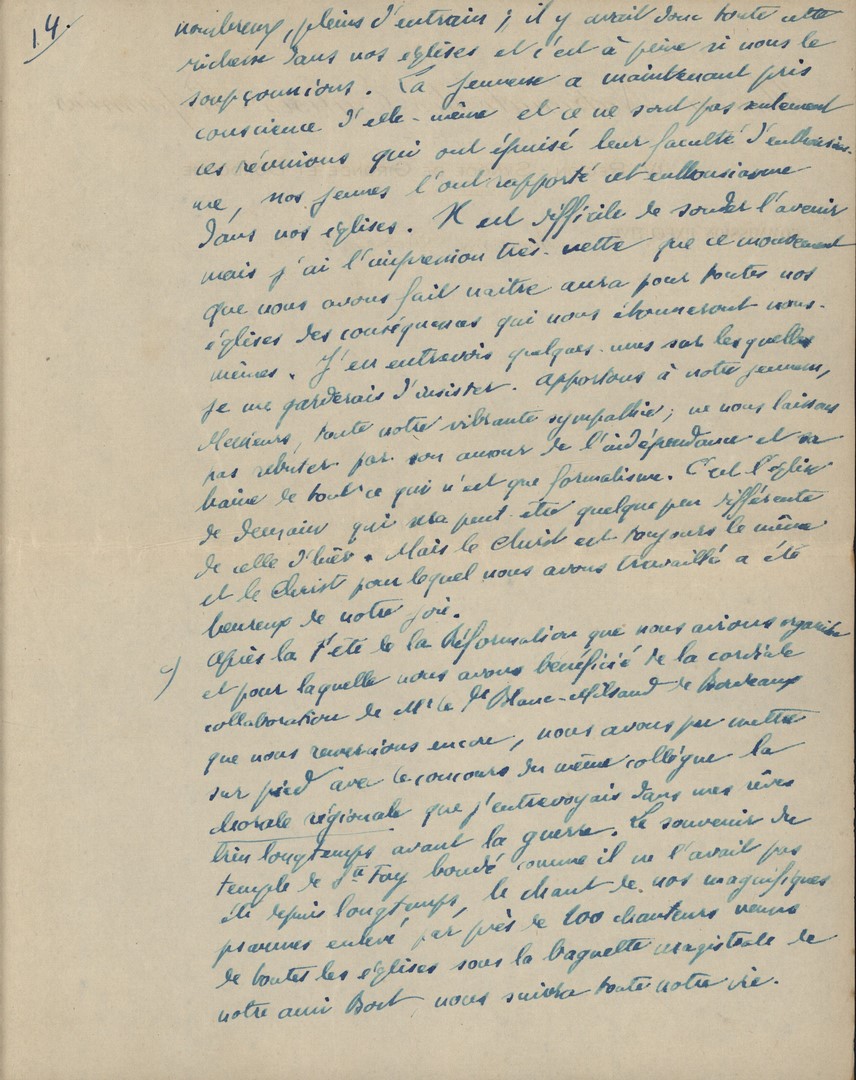 14.
nombreux, pleins d'entrain ; il y avait donc toute cette
richesse dans nos églises et c'est à peine si nous le
soupçonnions. La jeunesse a maintenant pris
conscience d'elle-même et ce ne sont pas seulement
ces réunions qui ont épuisé leur faculté d'enthousias-
me, nos jeunes l'ont rapporté cet enthousiasme
dans nos églises. Il est difficile de sonder l'avenir
mais j'ai l'impression très-nette que ce mouvement
que nous avons fait naitre aura pour toutes nos
églises des conséquences qui nous étonneront nous-
mêmes. J'en entrevois quelques-unes sur lesquelles
je me garderais d'insister. Apportons à notre jeunesse,
Messieurs, toute notre vibrante sympathie ; ne nous laissons
pas rebuter par son amour de l'indépendance et sa
haine de tout ce qui n'est que formalisme. C'est l'église
de demain qui sera peut-être quelque peu différente
de celle d'hier. Mais le Christ est toujours le même
et le Christ pour lequel nous avons travaillé a été
heureux de notre joie.
Après la Fête de la Réformation que nous avions organisée
et pour laquelle nous avons bénéficié de la cordiale
collaboration de Mr le Pr Blanc-Milsand de Bordeaux
que nous remercions encore, nous avons pu mettre
sur pied avec le concours du même collègue la
chorale régionale que j'entrevoyais dans mes rêves
très longtemps avant la guerre. Le souvenir du
temple de Ste Foy bondé comme il ne l'avait pas
été depuis longtemps, le chant de nos magnifiques
psaumes enlevé par près de 200 chanteurs venus
de toutes les églises sous la baguette magistrale de
notre ami Bost nous suivra toute notre vie.